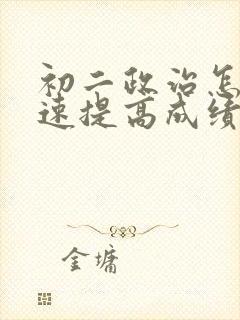 初二政治怎
速提高成绩
金墉